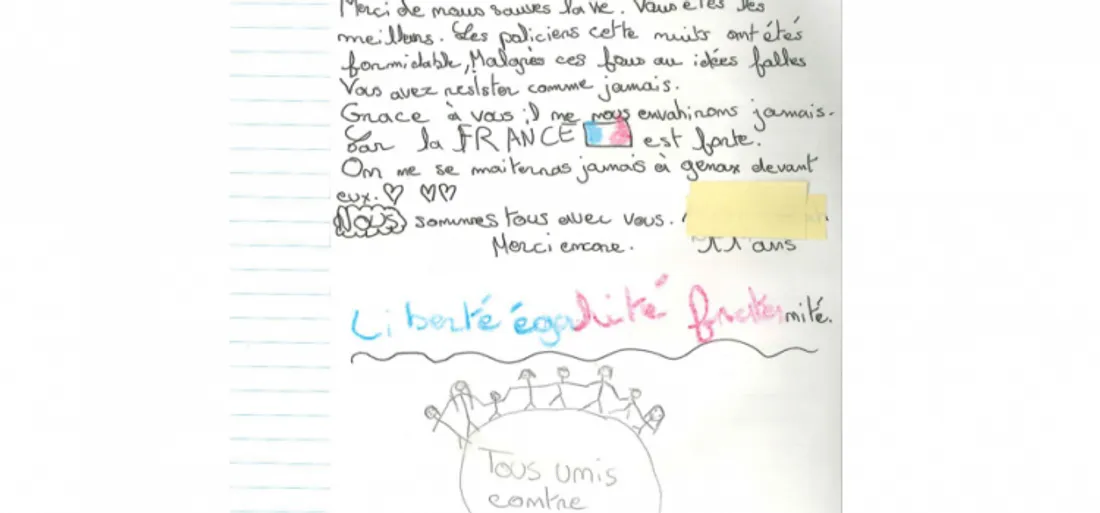 Merci de nous sauver la vie. Vous êtes les
meillens. Les policiens cette nuits ont étés
formidable, Malgrès ces fous au idées falles
Vous avez résister comme jamais.
Grace à vous il ne nous envahirons jamais.
Car la FRANCE est forte.
On ne se maiternas jamais à genax devant
eux.
NOUS sommes tous avec vous.
Merci encore. 11 ans
Liberté égalité fraternité.
Tous unis
contre